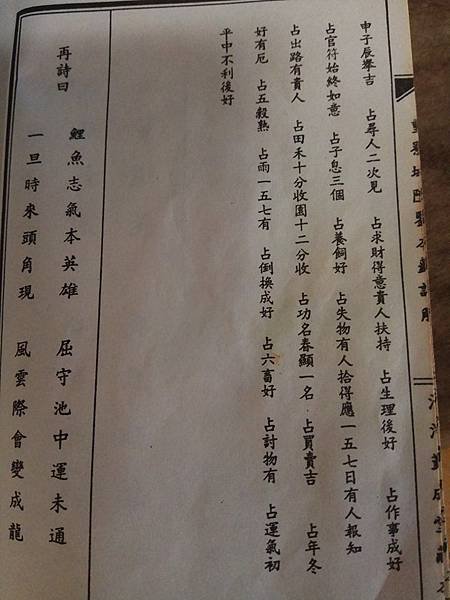 申子辰舉吉　占尋人二次見　占求財得意貴人扶持　占生理後好　占作事成好
占官符始終如意　占子息三個　占養飼好　占失物有人拾得應一五七日有人報知
占出路有貴人　占田禾十分收園十二分收　占功名春顯一名　占買賣吉　占年冬
好有厄　占五穀熟　占雨一五七有　占倒換成好　占六畜好　占討物有　占運氣初
平中不利後好
再詩曰
鯉魚志氣本英雄　屈守池中運未通
一旦時來頭角現　風雲際會變成龍